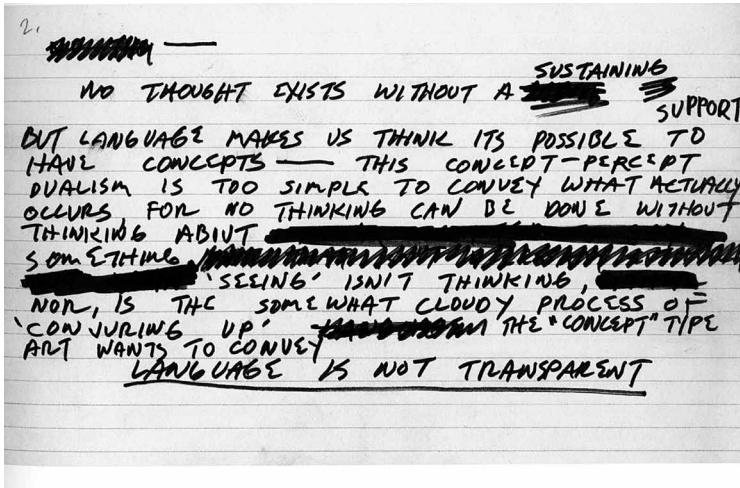 2.
—
SUSTAINING
NO THOUGHT EXISTS WITHOUT A
SUPPORT
BUT LANGUAGE MAKES US THINK ITS POSSIBLE TO
HAVE CONCEPTS — THIS CONCEPT-PERCEPT
DUALISM IS TOO SIMPLE TO CONVEY WHAT ACTUALLY
OCCURS, FOR NO THINKING CAN BE DONE WITHOUT
THINKING ABIUT
SOMETHING,
'SEEING' ISN'T THINKING,
NOR, IS THE SOMEWHAT CLOUDY PROCESS OF
'CONJURING UP' THE "CONCEPT" TYPE
ART WANTS TO CONVEY
LANGUAGE IS NOT TRANSPARENT